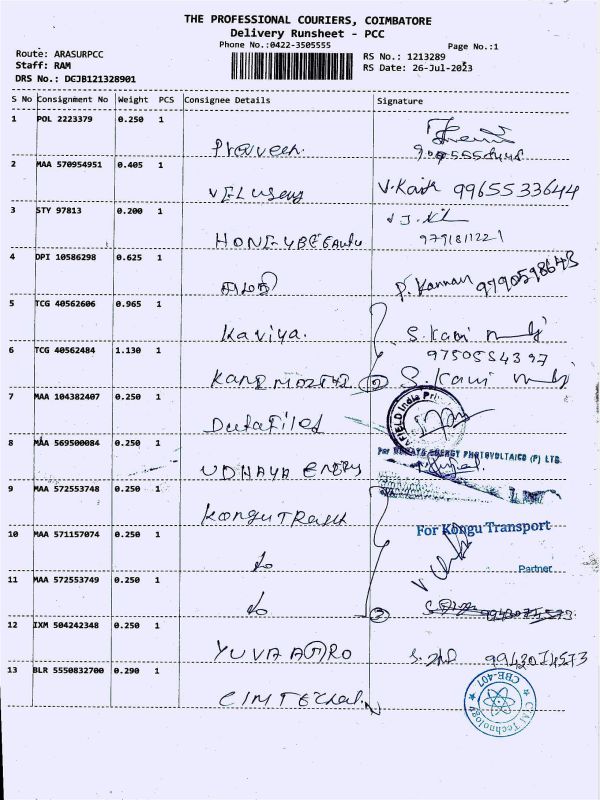 THE PROFESSIONAL COURIERS, COIMBATORE
Delivery Runsheet - PCC
Phone No.:0422-3505555
Page No.:1
Route: ARASURPCC
RS No.: 1213289
Staff: RAM
RS Date: 26-Jul-2023
DRS No.: DGJB121328901
S No Consignment No Weight PCS Consignee Details Signature
1 POL 2223379 0.250 1
Praveen.
2 MAA 570954951 0.405 1
VELUSamy V.Kaik 9965533644
3 STY 97813 0.200 1
HONEYBEEauty 9791811221
4 DPI 10586298 0.625 1
P. Kannan 9790598643
5 TCG 40562606 0.965 1
Kaviya. S. Kani
9750554397
6 TCG 40562484 1.130 1
KANI MOZTHI 2 S. Kani
7 MAA 104382407 0.250 1
DataFiled
FIELD India Pri
8 MAA 569500084 0.250 1
UDHAYA ENERGY
For UDHAYA ENERGY PHOTOVOLTAICS (P) LTD.
9 MAA 572553748 0.250 1
KONGU TRANSP
10 MAA 571157074 0.250 1
For Kongu Transport
do
Partner
11 MAA 572553749 0.250 1
do 3
12 IXM 504242348 0.250 1
YUVA AGRO 9942074573
13 BLR 5550832700 0.290 1
CIMTECHal.
CIM Technology
CBE-407